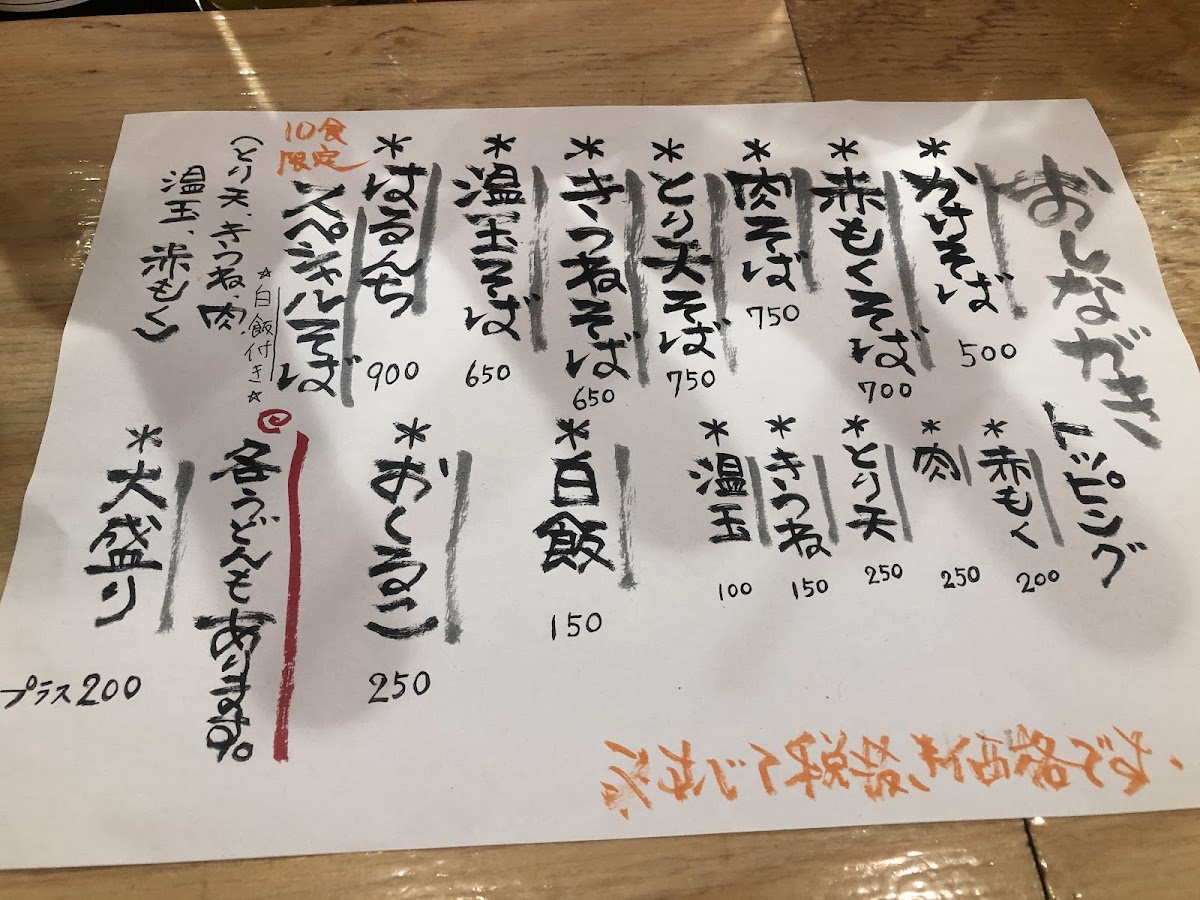 おしながき
*かけそば
500
*赤もくそば
700
*肉そば
750
*とり天そば
750
*きつねそば
650
*温玉そば
650
*はるんち
スペシャルそば
900
10食
限定
☆白飯付き☆
(とり天、きつね、肉、
温玉、赤もく)
トッピング
*赤もく
200
*肉
250
*とり天
250
*きつね
150
*温玉
100
*白飯
150
*おくるこ
250
各うどんもあります。
*大盛り
プラス200